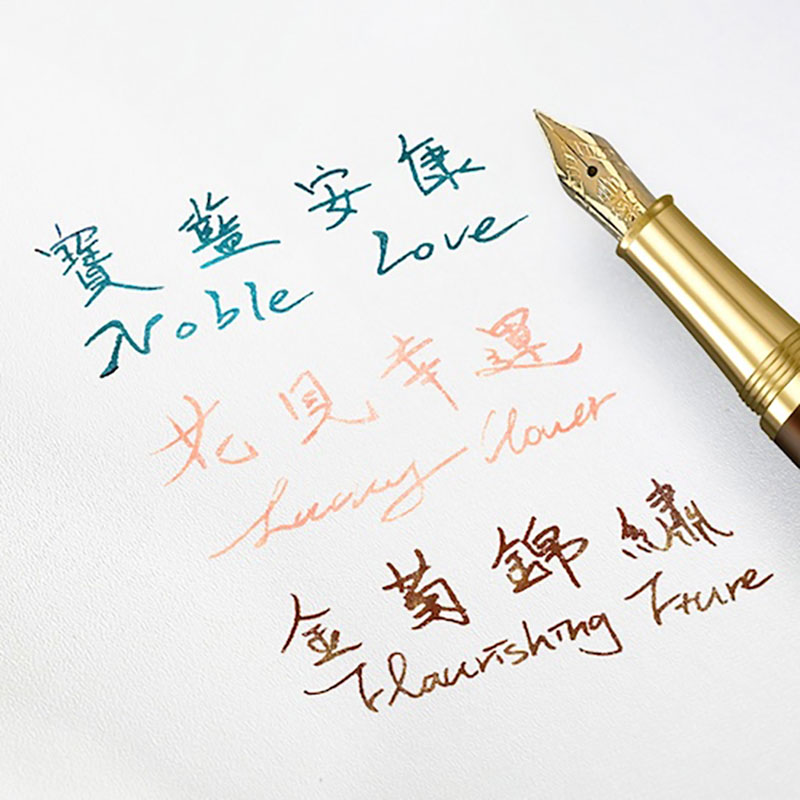 寶藍安康
Noble Love
花見幸運
Luccuy Clover
金菊錦繡
Flourishing Fture